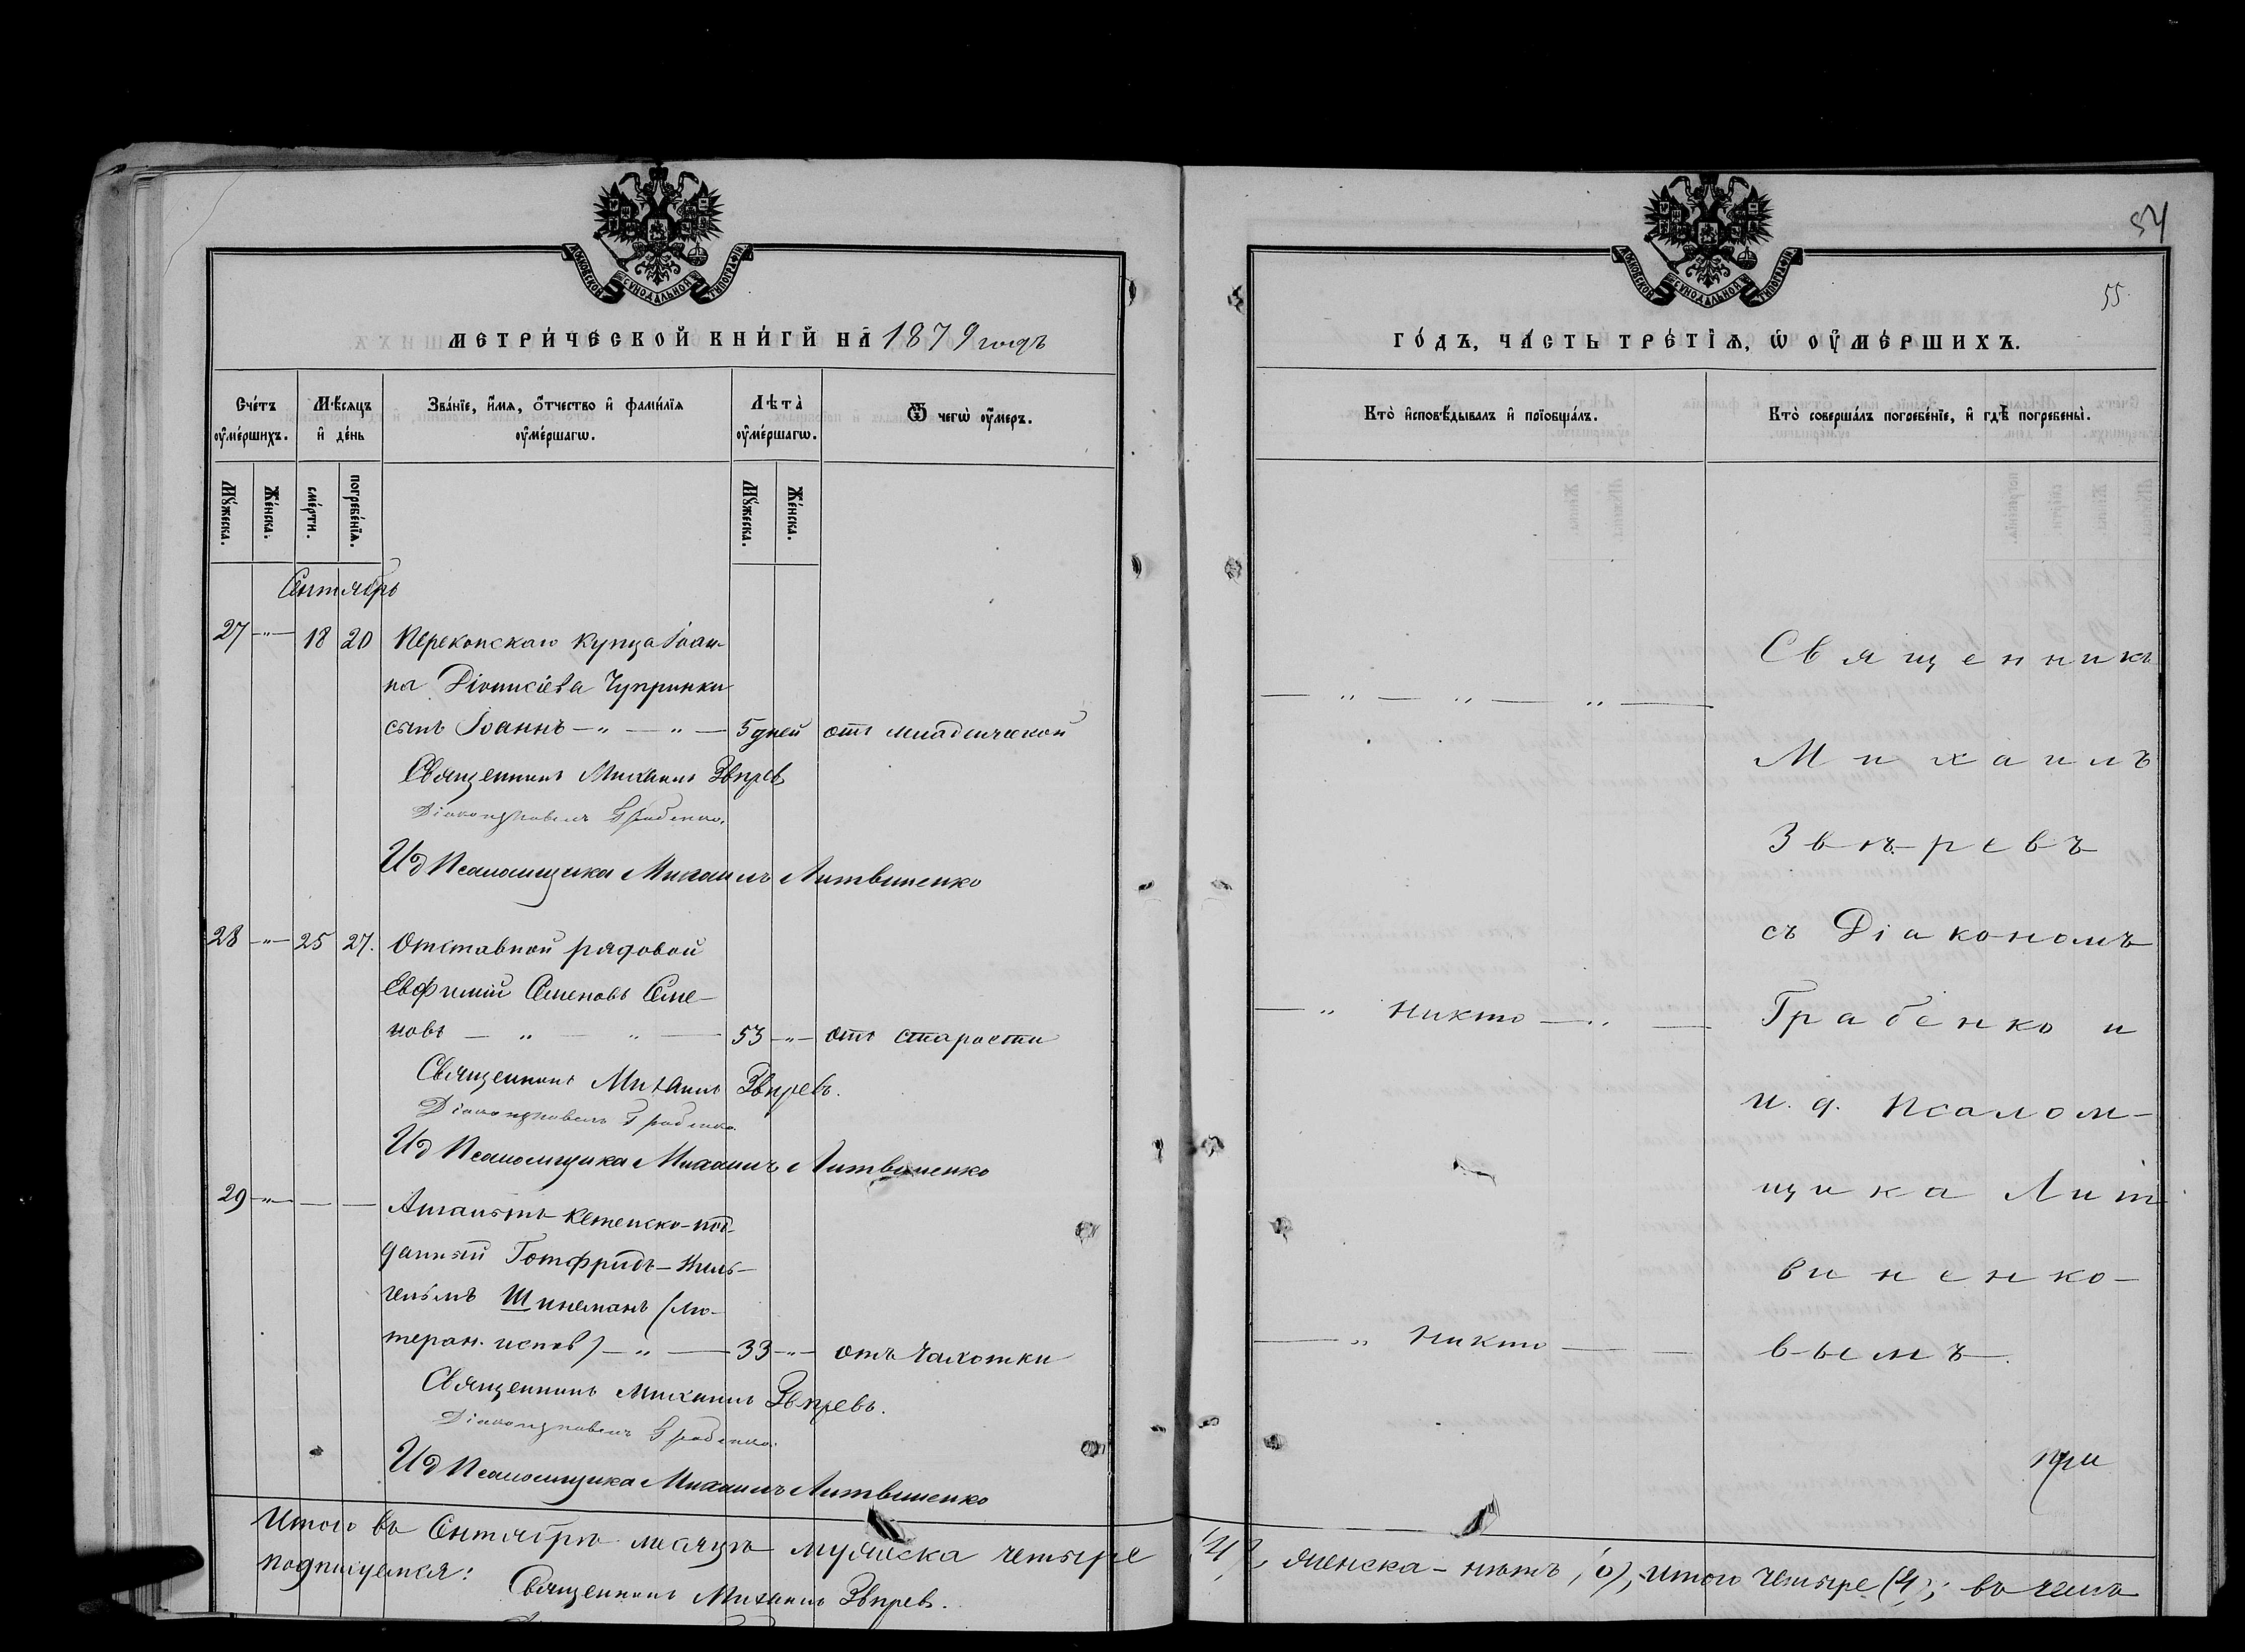 МОСКОВСКОЙ СѴНОДАЛЬНОЙ ТИПОГРАФІИ
МЕТРИ́ЧЕСКОЙ КНИ́ГИ НА 1879 годъ
Сче́тъ ᲂу҆ме́ршихъ.
Мѣ́сяцъ и҆ де́нь
Зва́нїе, и҆́мѧ, ѻ҆́тчество и҆ фамилїѧ ᲂу҆ме́ршагѡ.
Лѣта̀ ᲂу҆ме́ршагѡ.
Ѿ чегѡ̀ ᲂу҆́меръ.
Мꙋ́жеска.
Же́нска.
сме́рти.
погребе́нїѧ.
Мꙋ́жеска.
Же́нска.
Сентябрь
27 — " — 18 20 Перекопскаго купца Іоан-
на Діонисіева Чупринки
сынъ Іоаннъ — " — " — 5 дней отъ младенческой
Священникъ Михаилъ Звѣревъ
Діаконъ Павелъ Грабенко.
ИД Псаломщика Михаилъ Литвиненко
28 — " — 25 27. Отставной рядовой
Евфимій Семеновъ Семе-
новъ — " — " — 53 — " — отъ старости
Священникъ Михаилъ Звѣревъ.
Діаконъ Павелъ Грабенко.
ИД Псаломщика Михаилъ Литвиненко
29 — " — — —
под-
данный Готфридъ-Виль-
гельмъ Шинеманъ (лю-
теран. испов) — " — 33 — " — отъ чахотки
Священникъ Михаилъ Звѣревъ.
Діаконъ Павелъ Грабенко.
ИД Псаломщика Михаилъ Литвиненко
Итого въ Сентябрѣ мѣсяцѣ мужеска четыре
подписуемся:
Священникъ Михаилъ Звѣревъ.
54
55.
МОСКОВСКОЙ СѴНОДАЛЬНОЙ ТИПОГРАФІИ
ГО́ДЪ, ЧА́СТЬ ТРЕ́ТЇѦ, Ѡ҆ ОУ҆МЕ́РШИХЪ.
Кто̀ и҆сповѣ́дывалъ и҆ прїѡбща́лъ.
Кто̀ соверша́лъ погребе́нїе, и҆ гдѣ̀ погребены̀.
Священникъ
— " — " — " —
Михаилъ
Звѣревъ
съ Діакономъ
— " Никто — " — Грабенко и
и. д. Псалом-
щика Лит
виненко-
— " Никто — — вымъ.
при
(4), женска - нѣтъ (0), итого четыре (4); въ чемъ